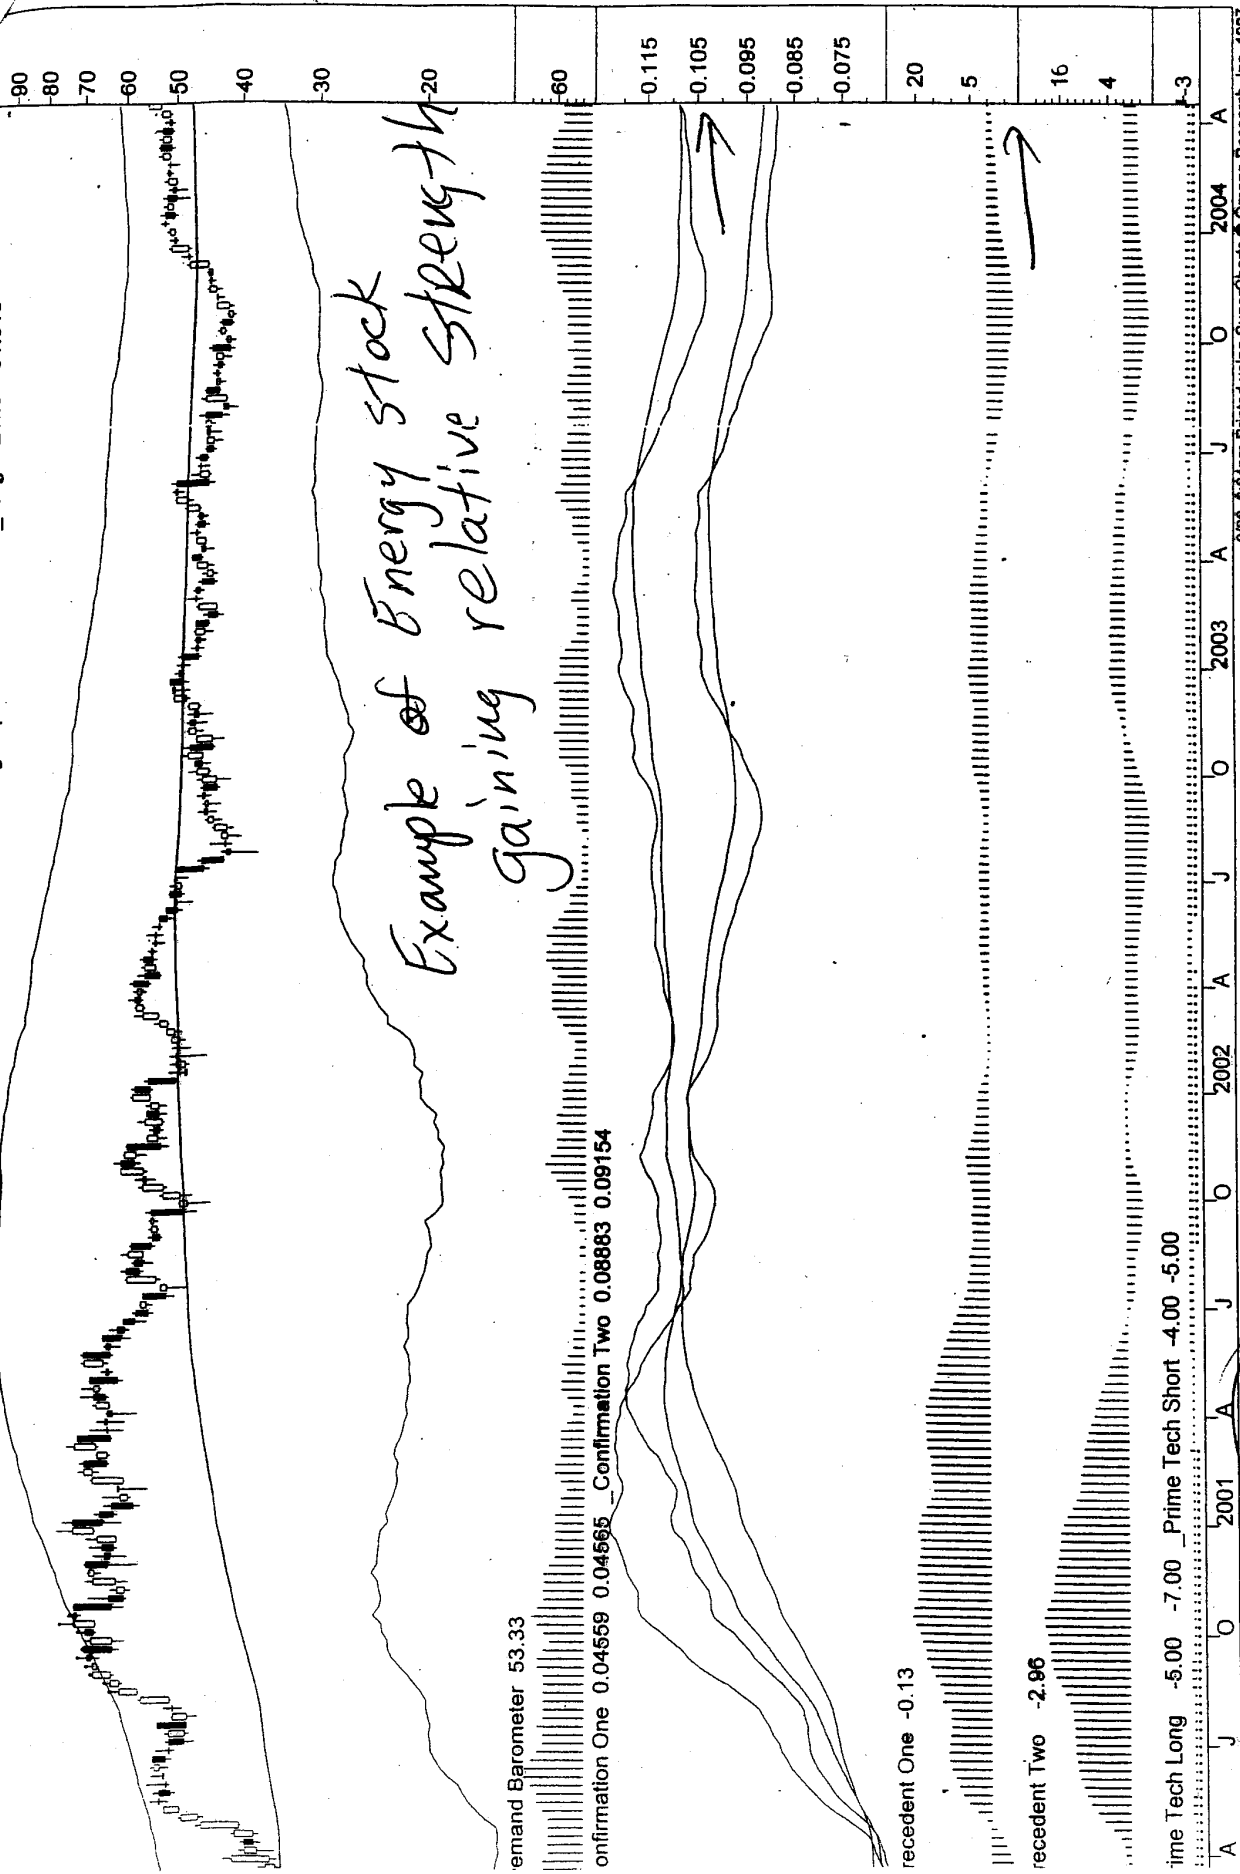 90
80
70
60
50
40
30
20
Example of Energy stock
gaining relative strength
emand Barometer 53.33
60
onfirmation One 0.04559 0.04565 _Confirmation Two 0.08883 0.09154
0.115
0.105
0.095
0.085
0.075
recedent One -0.13
20
5
recedent Two -2.96
16
4
rime Tech Long -5.00 -7.00 _Prime Tech Short -4.00 -5.00
-3
A J O 2001 A J O 2002 A J O 2003 A J O 2004 A